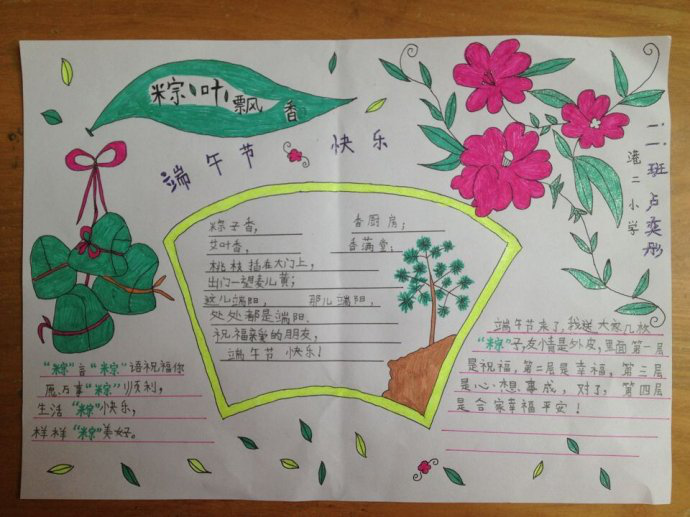 粽叶飘香
端午节 快乐
港二小学
二一班 卢奕彤
粽子香， 香厨房；
艾叶香， 香满堂；
桃枝插在大门上，
出门一望麦儿黄；
这儿端阳， 那儿端阳，
处处都是端阳。
祝福亲爱的朋友，
端午节 快乐！
“粽”言“粽”语祝福你
愿万事“粽”顺利，
生活“粽”快乐，
样样“粽”美好。
端午节来了，我送大家几枚
“粽”子，友情是外皮，里面第一层
是祝福，第二层是幸福，第三层
是心想事成，对了，第四层
是合家幸福平安！